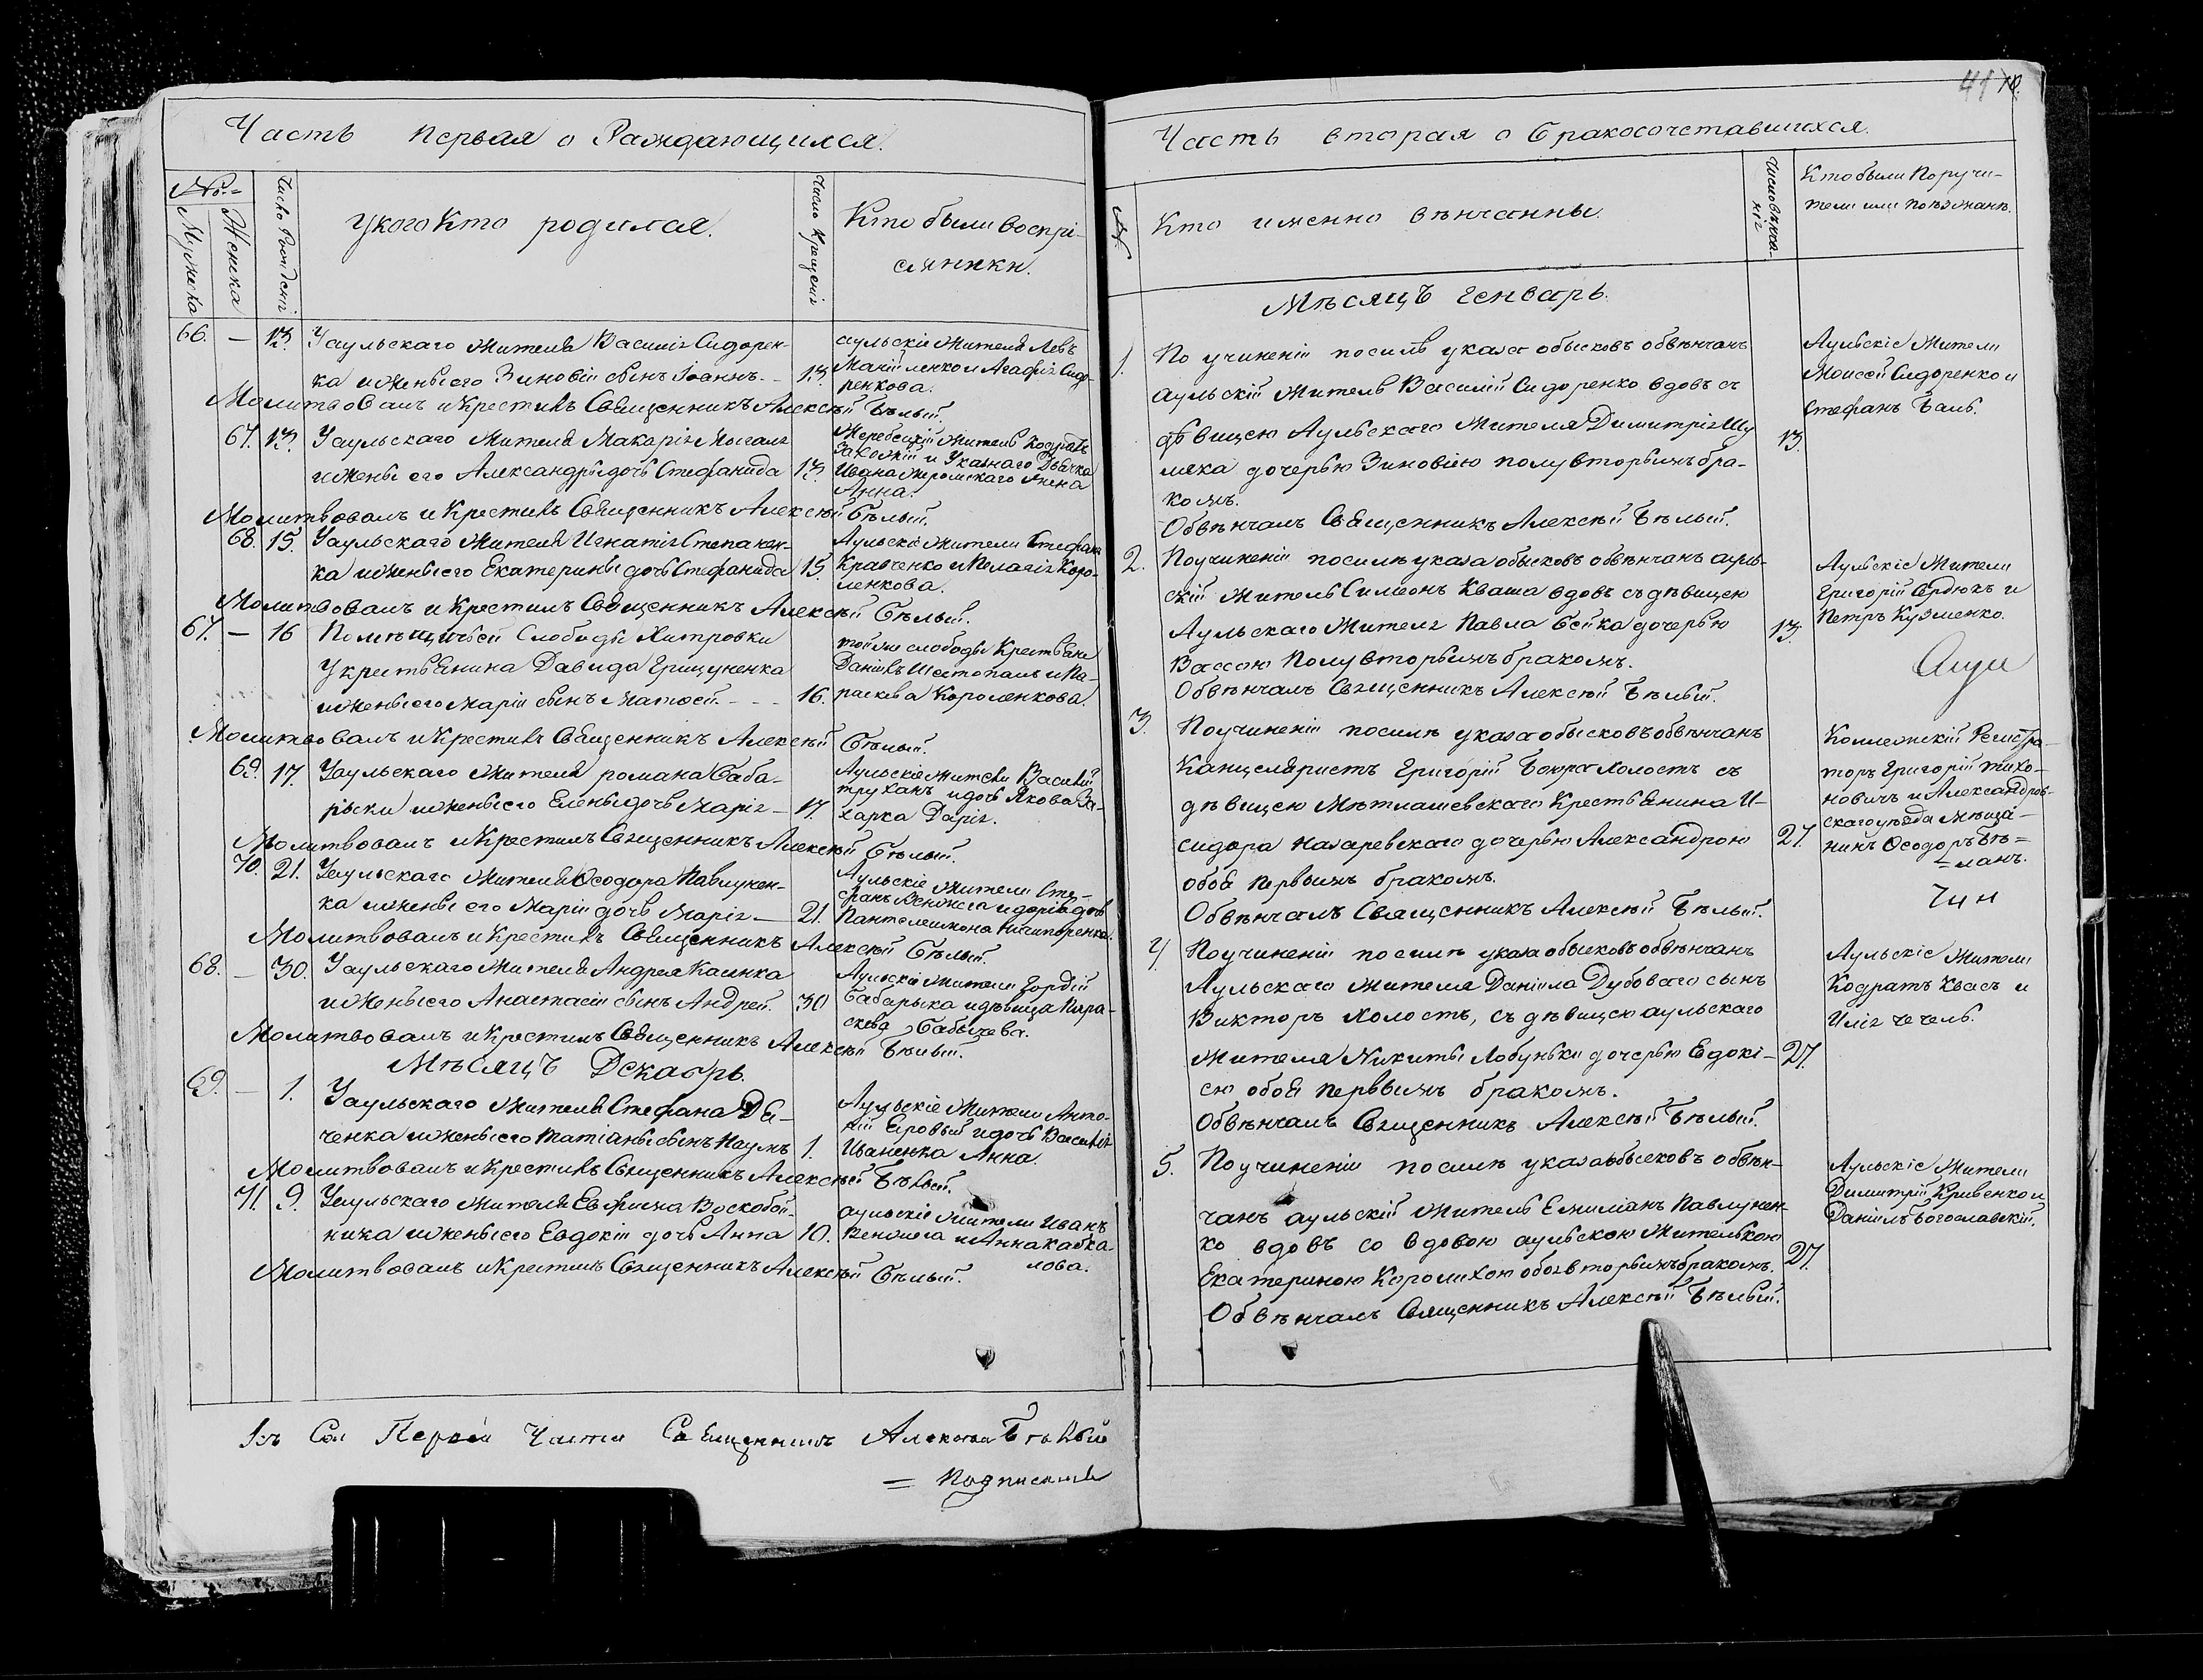 Часть первая о Раждающихся.
№
Мужеска
Женска
Число Рождения
У кого Кто родился.
Число Крещения
Кто были воспрі-
емники.
66. — 13. У аульскаго жителя Василія Сидорен-
ка и жены его Зиновіи сынъ Іоаннъ. — 13.
аульскіе жители Левъ
и Агафія Сидо-
ренкова.
Молитвовалъ и Крестилъ Священникъ Алексѣй Бѣлый.
67. 13. У аульскаго жителя Макарія
и жены его Александры дочь Стефанида 13.
житель Кодратъ
и Указнаго Дьячка
Ивана жена
Анна.
Молитвовалъ и Крестилъ Священникъ Алексѣй Бѣлый.
68. 15. У аульскаго жителя Игнатія Степанен-
ка и жены его Екатерины дочь Стефанида 15.
Аульскіе жители Стефанъ
Кравченко и Пелагія Коро-
ленкова.
Молитвовалъ и Крестилъ Священникъ Алексѣй Бѣлый.
67. — 16 Помѣщичьей Слободы Хитровки
У крестьянина Давида Грицуненка
и жены его Маріи сынъ Матфей. — 16.
той же слободы Крестьяне
Даніилъ Шестопалъ и Па-
раскева Короленкова.
Молитвовалъ и Крестилъ Священникъ Алексѣй Бѣлый.
69. 17. У аульскаго жителя романа Баба-
рыки и жены его Елены дочь Марія — 17.
Аульскіе жители Василій
труханъ и дочь Якова За-
харка Дарія.
Молитвовалъ и Крестилъ Священникъ Алексѣй Бѣлый.
70. 21. У аульскаго жителя Феодора Павлунен-
ка и жены его Маріи дочь Марія — 21.
Аульскіе жители Сте-
фанъ и дочь
Пантелеимона Ничипоренка.
Молитвовалъ и Крестилъ Священникъ Алексѣй Бѣлый.
68. — 30. У аульскаго жителя Андрея Калинка
и жены его Анастасіи сынъ Андрей. 30
Аульскіе жители Гордій
Бабарыка и дѣвица Пара-
скева Бабичева.
Молитвовалъ и Крестилъ Священникъ Алексѣй Бѣлый.
Мѣсяцъ Декабрь.
69. — 1. У аульскаго жителя Стефана Дя-
ченка и жены его Татіаны сынъ Наумъ 1.
Аульскіе жители Анто-
ній и дочь Василія
Иваненка Анна.
Молитвовалъ и Крестилъ Священникъ Алексѣй Бѣлый.
71. 9. У аульскаго жителя Евфима Воскобой-
ника и жены его Евдокіи дочь Анна 10.
аульскіе жители Иванъ
и Анна
лова.
Молитвовалъ и Крестилъ Священникъ Алексѣй Бѣлый.
Первой Части Священникъ Алексѣй Бѣлый
= Подписалъ
41
Часть вторая о Бракосочетавшихся.
№
Кто именно вѣнчанны.
Число вѣнча-
нія
Кто были Поручи-
тели или поѣзжанѣ.
Мѣсяцъ генварь.
1. По учиненіи посилѣ указа обысковъ обвѣнчанъ
аульскій житель Василій Сидоренко вдовъ съ
дѣвицею Аульскаго жителя Димитрія Шу
ляка дочерью Зиновіею полувторымъ бра-
комъ.
13.
Аульскіе жители
Моисей Сидоренко и
Стефанъ
Обвѣнчалъ Священникъ Алексѣй Бѣлый.
2. По учиненіи посилѣ указа обысковъ обвѣнчанъ ауль-
скій житель Симеонъ Кваша вдовъ съ дѣвицею
Аульскаго жителя Павла Бейка дочерью
Вассою полувторымъ бракомъ.
13.
Аульскіе жители
Григорій Сердюкъ и
Петръ Кузменко.
Обвѣнчалъ Священникъ Алексѣй Бѣлый.
3. По учиненіи посилѣ указа обысковъ обвѣнчанъ
Канцеляристъ Григорій холостъ съ
дѣвицею Крестьянина И-
сидора Назаревскаго дочерью Александрою
обоя первымъ бракомъ.
27.
Коллежскій Регистра-
торъ Григорій тихо-
новичъ и Александров-
скаго уѣзда мѣща-
нинъ Феодоръ Бѣ-
ланъ.
Обвѣнчалъ Священникъ Алексѣй Бѣлый.
4. По учиненіи посилѣ указа обысковъ обвѣнчанъ
Аульскаго жителя Даніила Дубоваго сынъ
Викторъ холостъ, съ дѣвицею аульскаго
жителя Никиты Лобуньки дочерью Евдокі-
ею обоя первымъ бракомъ.
27.
Аульскіе жители
Кодратъ Квасъ и
Илія
Обвѣнчалъ Священникъ Алексѣй Бѣлый.
5. По учиненіи посилѣ указа обысковъ обвѣн-
чанъ аульскій житель Емиліанъ Павлунен-
ко вдовъ со вдовою аульскою жителькою
Екатериною Королихою обоя вторымъ бракомъ.
27.
Аульскіе жители
Димитрій Кривенко и
Даніилъ Богославскій.
Обвѣнчалъ Священникъ Алексѣй Бѣлый.